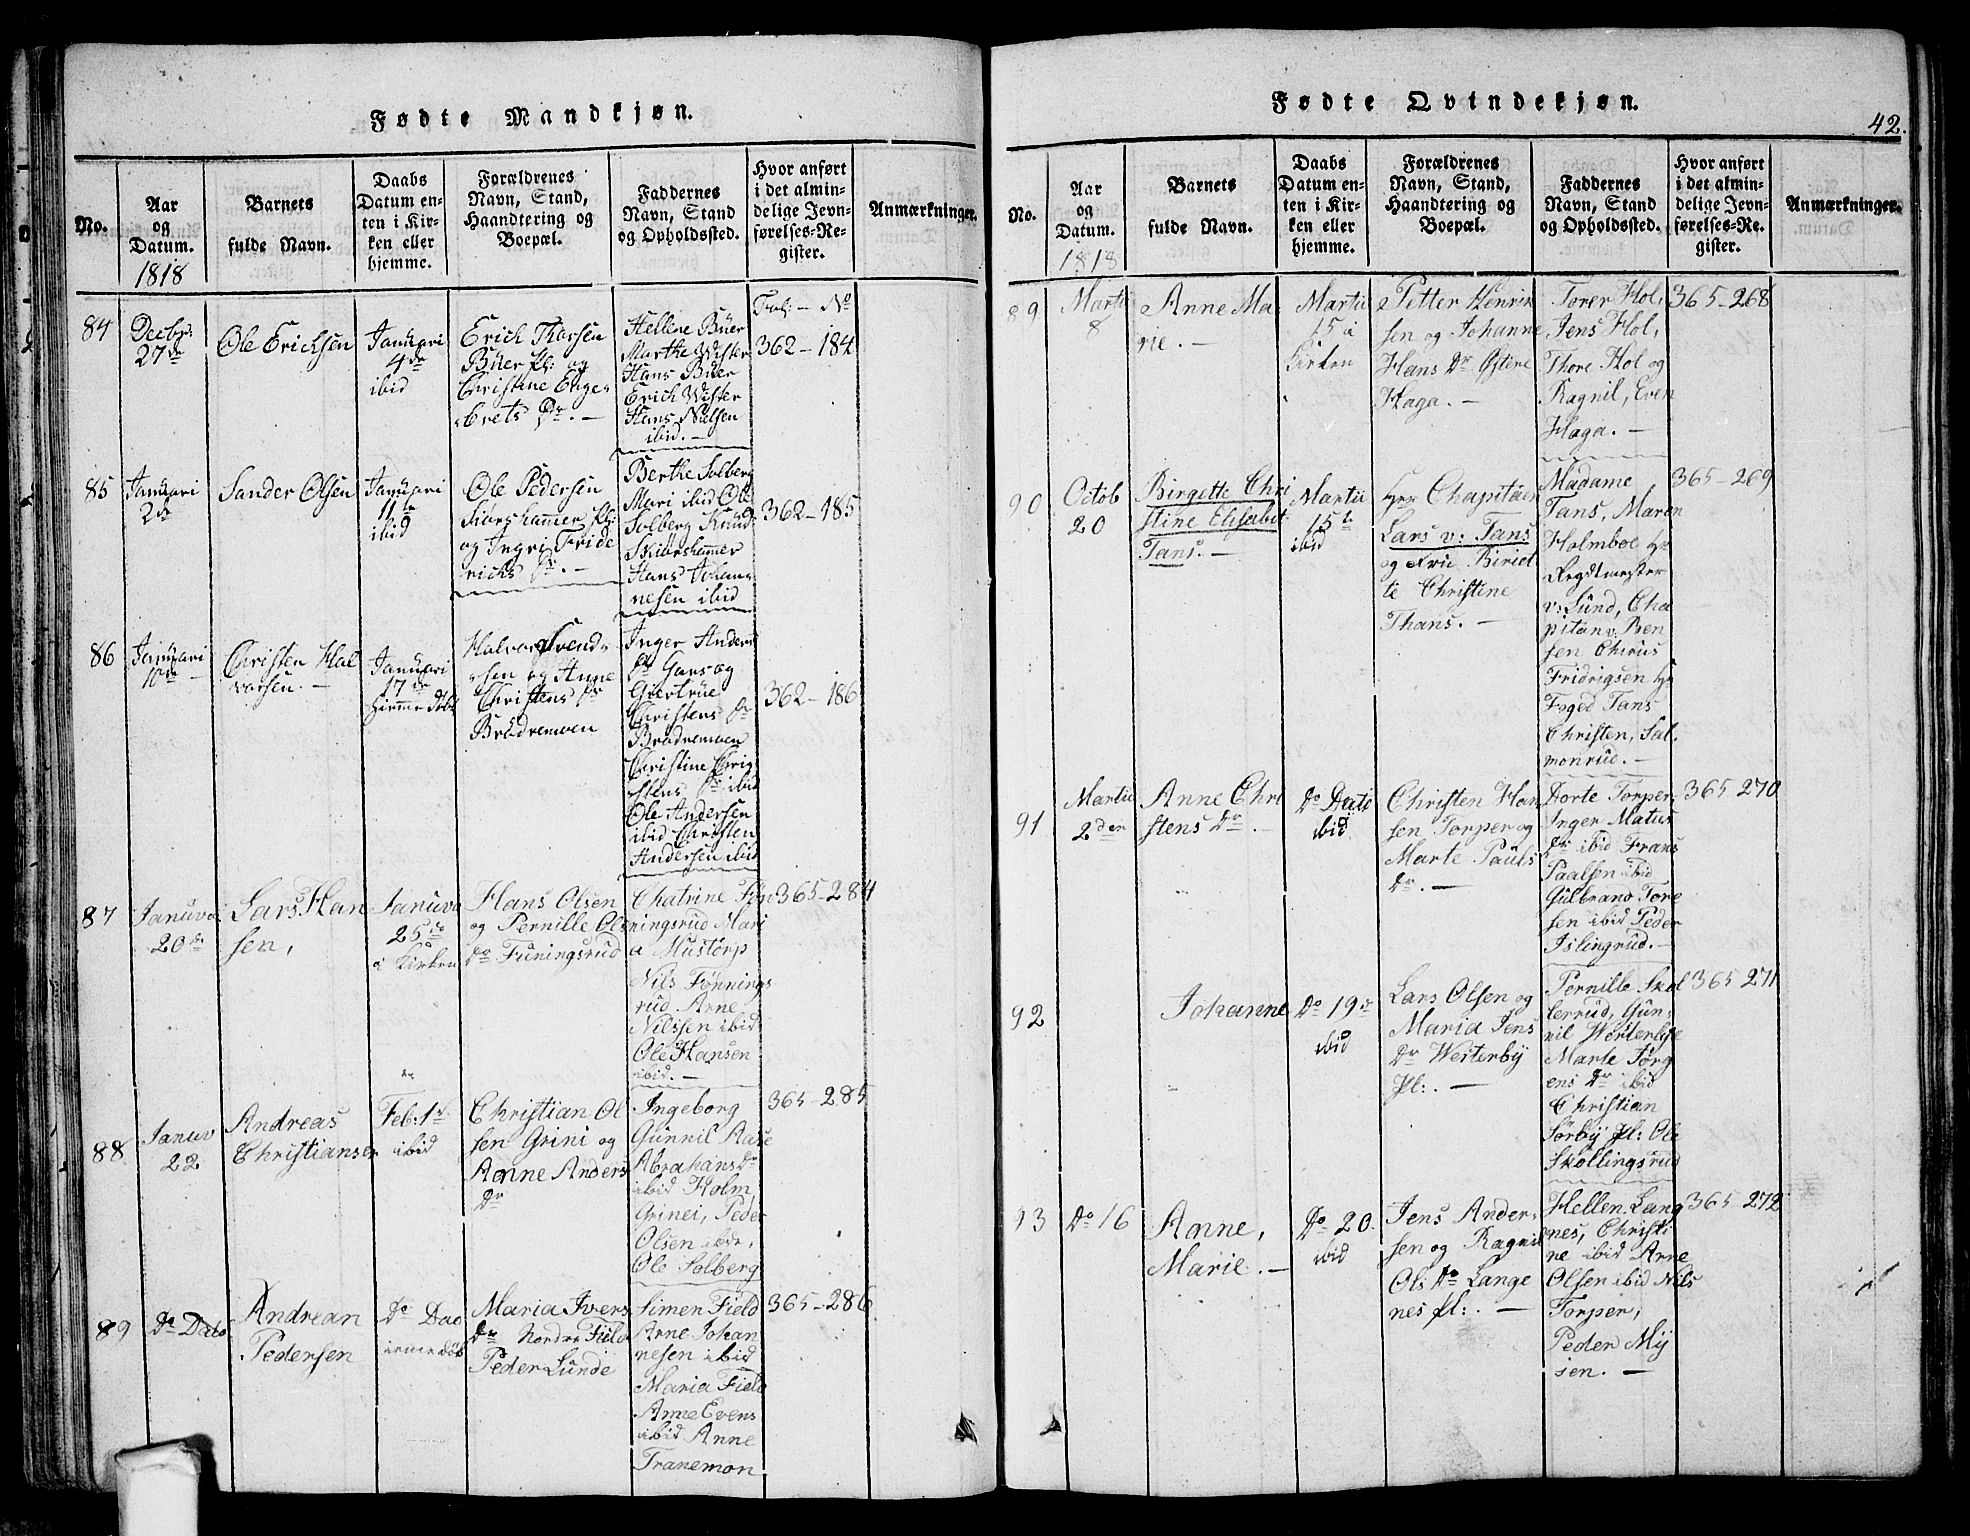 Fødte Mandkjøn.
No.
Aar og Datum. 1818
Barnets fulde Navn.
Daabs Datum enten i Kirken eller hjemme.
Forældrenes Navn, Stand, Haandtering og Boepæl.
Faddernes Navn, Stand og Opholdssted.
Hvor anført i det almindelige Jevnførelses-Register.
Anmærkninger.
Fol: — No
84
Decbr: 27de
Ole Erichsen
Januari
4de
ibid
Erich Thorsen
Büer pl: og
Christine Enge-
brets Dr. —
Hellene Büer
Marthe Wister
Hans Büer
Erich Wister
Hans Nielsen
ibid. —
362 — 184
85
Januari
2de
Sander Olsen
Januari
11te
ibid
Ole Pedersen
Siørshammer pl:
og Ingri Fride
richs Dr. —
Berthe Solberg
Mari ibid Ole
Solberg Knud
Skiørshammer
Hans Johan-
nesen ibid
362 — 185
86
Januari
10de
Christen Hal
vorsen. —
Januari
17de
hiemme døbt
Halvor Svend-
sen og Anne
Christens Dr
Brødremoen
Inger Anders
Dr Gars og
Giertrüe
Christens Dr
Brødremoen
Christine Chri
stens Dr ibid
Ole Andersen
ibid Christen
Andersen ibid
362 — 186
87
Januvai
20de
Lars Han
sen,
Januva
25de
i Kirken
Hans Olsen
og Pernille Ols
dr Funingsrud
Chatrine Føn
ningsrud Mari
a Mustorp
Nils Fønnings
rud Arne
Nilssen ibid
Ole Hansen
ibid. —
365 — 284
88
Januv
22
Andreas
Christiansen
Feb: 1ste
ibid
Christian Ol
sen Grini og
Anne Anders
dr
Ingeborg
Gunnil Aase
Abrahans dr
ibid Holm,
Grinei, Peder
Olsen ibid,
Ole Solberg
365 — 285
89
do Dato
Andrean
Pedersen
do Dao
Maria Ivers
dr Nordre Field
Peder Lunde
Simen Field
Arne Johan
nesen ibid
Maria Field
Anne Evens
ibid Anne
Tranemon
365 — 286
Fødte Qvindekjøn.
42.
No.
Aar og Datum. 1818
Barnets fulde Navn.
Daabs Datum enten i Kirken eller hjemme.
Forældrenes Navn, Stand, Haandtering og Boepæl.
Faddernes Navn, Stand og Opholdssted.
Hvor anført i det almindelige Jevnførelses-Register.
Anmærkninger.
89
Martii
8
Anne Ma-
rie. —
Martii
15 i
Kirken
Petter Henrik
sen og Johanne
Hans Dr Østere
Haga. —
Torer Hol,
Jens Hol,
Thore Hol og
Ragnil, Even
Haga. —
365 — 268
90
Octob
20
Birgette Chri
stine Elisabet
Tans. —
Martii
15t
ibid
Hr Chapitäen
Lars v: Tans
og Frü Biriet
te Christene
Thans. —
Madame
Tans, Maren
Holmboe Hr
Regdtmester
v: Lund, Cha
pitän v: Ben
sen Chirus
Fridrigsen Hr
Foged Tans
Christen, Sal
monrud. —
365 — 269
91
Martii
2den
Anne Chri
stens dr. —
do Dato
ibid
Christen Han
sen Torper og
Marte Pauls
dr. —
Dorte Torper,
Inger Matus
dr ibid Frans
Paalsen ibid
Gulbrand Tore
sen ibid Peder
Islingrud. —
365 270
92
Johanne
do 19de
ibid
Lars Olsen og
Maria Jens
dr Westerby
pl:. —
Pernille Skol
lerrud, Gun-
nil Westerbye
Marte Jørg
ens dr ibid
Christian
Sørby pl: Ole
Skøllingsrud
365 271
93
do 16
Anne,
Marie. —
do 20.
ibid
Jens Ander-
sen og Ragnil
Ols dr Lange
nes pl:. —
Hellen Lang
nes, Christi
ne ibid Arne
Olsen ibid Nils
Torper,
Peder Mij
sen. —
365 — 272